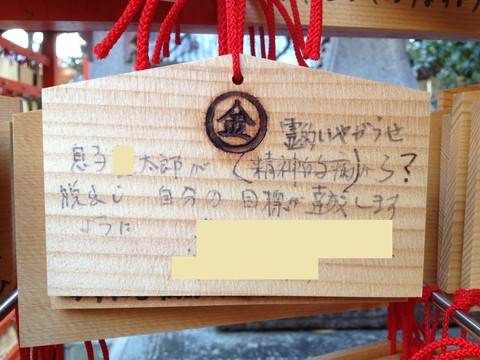 金
霊的いやがらせ
息子 太郎が (精神的病)から?
脱出し 自分の目標が達成します
ように